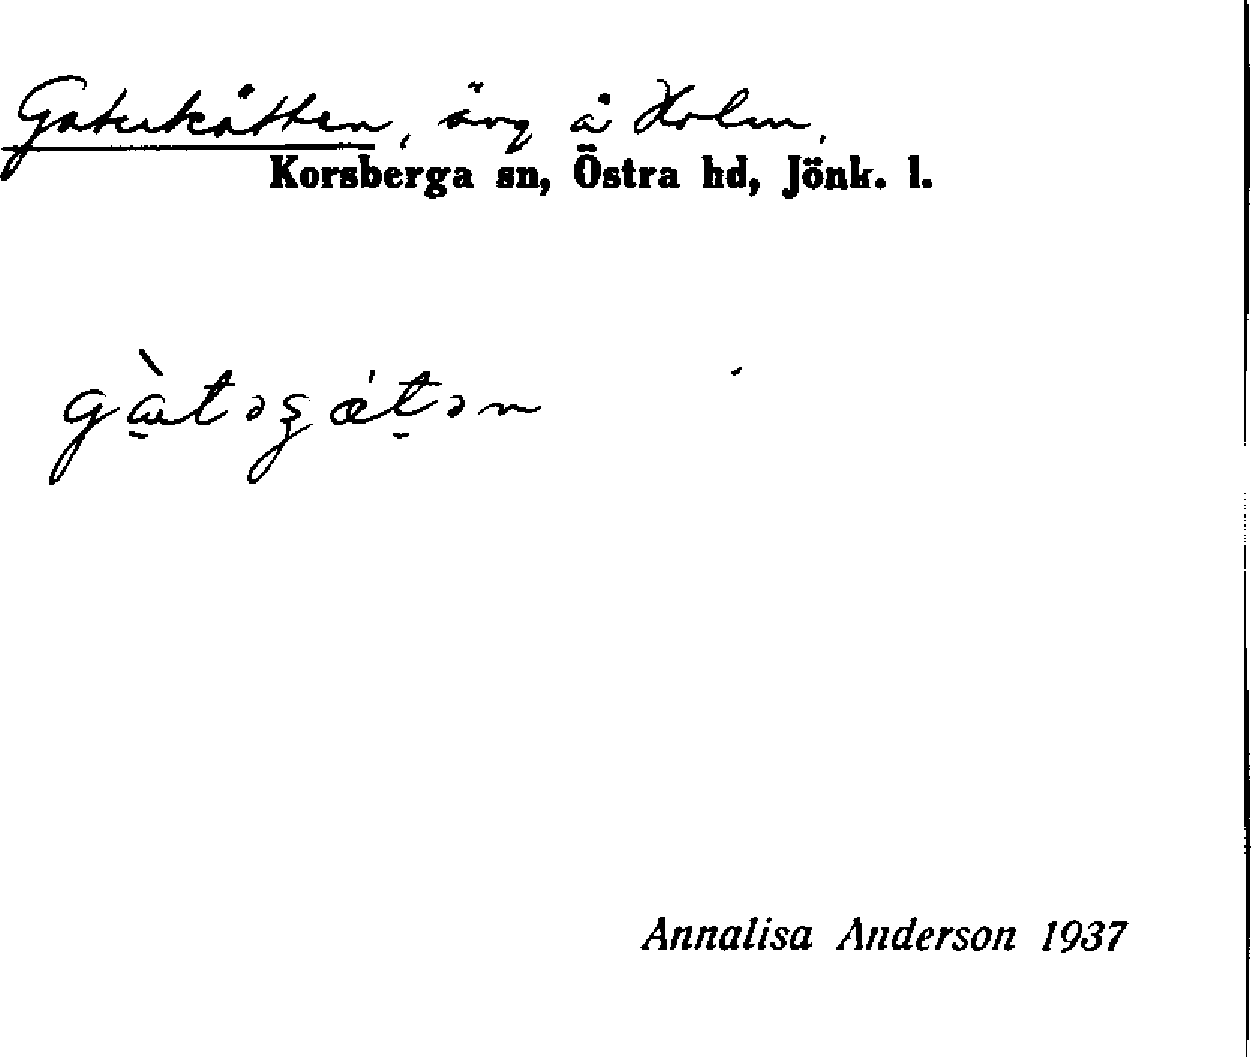 Gatukätten, äng å Holm,
Korsberga sn, Östra hd, Jönk. l.
Annalisa Anderson 1937